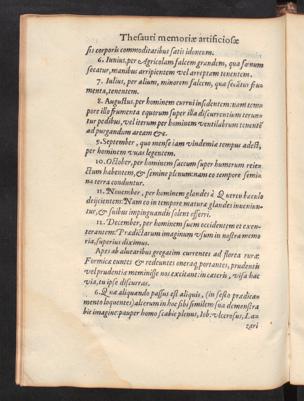 Thesauri memoriæ artificiosæ
sis corporis commoditatibus satis idoneum.
6. Iunius, per Agricolam falcem grandem, qua fœnum
secatur, manibus arripientem vel arreptam tenentem.
7. Iulius, per alium, minorem falcem, qua secātur
menta, tenentem.
8. Augustus, per hominem currui insidentem: nam tempore
illo frumenta equorum super illa discurrentium teruntur
pedibus, vel iterum per hominem ventilabrum tenentē
ad purgandum aream &c.
9. September, quo mense iam vindemiæ tempus adest,
per hominem vuas legentem.
10. October, per hominem saccum super humerum
habentem, & semine plenum: nam eo tempore semina
terra conduntur.
11. Nouember, per hominem glandes à Quercu baculo
deijcientem: Nam eo in tempore maturæ glandes
& suibus impinguandis solent offerri.
12. December, per hominem suem occidentem et
Prædictarum imaginum vsum in nostra memoria,
superius diximus.
Apes ab aluearibus gregatim currentes ad florea rura:
Formicæ euntes & redeuntes onera portantes, prudentiæ
vel prudentia meminisse nos excitant: in cæteris, visa hac
via, tu ipse discurras.
6. Quæ aliquando passus est aliquis, (in festo
loquentes) alterum in hoc sibi similem sua
imagine: pauper homo scabie plenus, Iob: vlcerosus, La-
zari